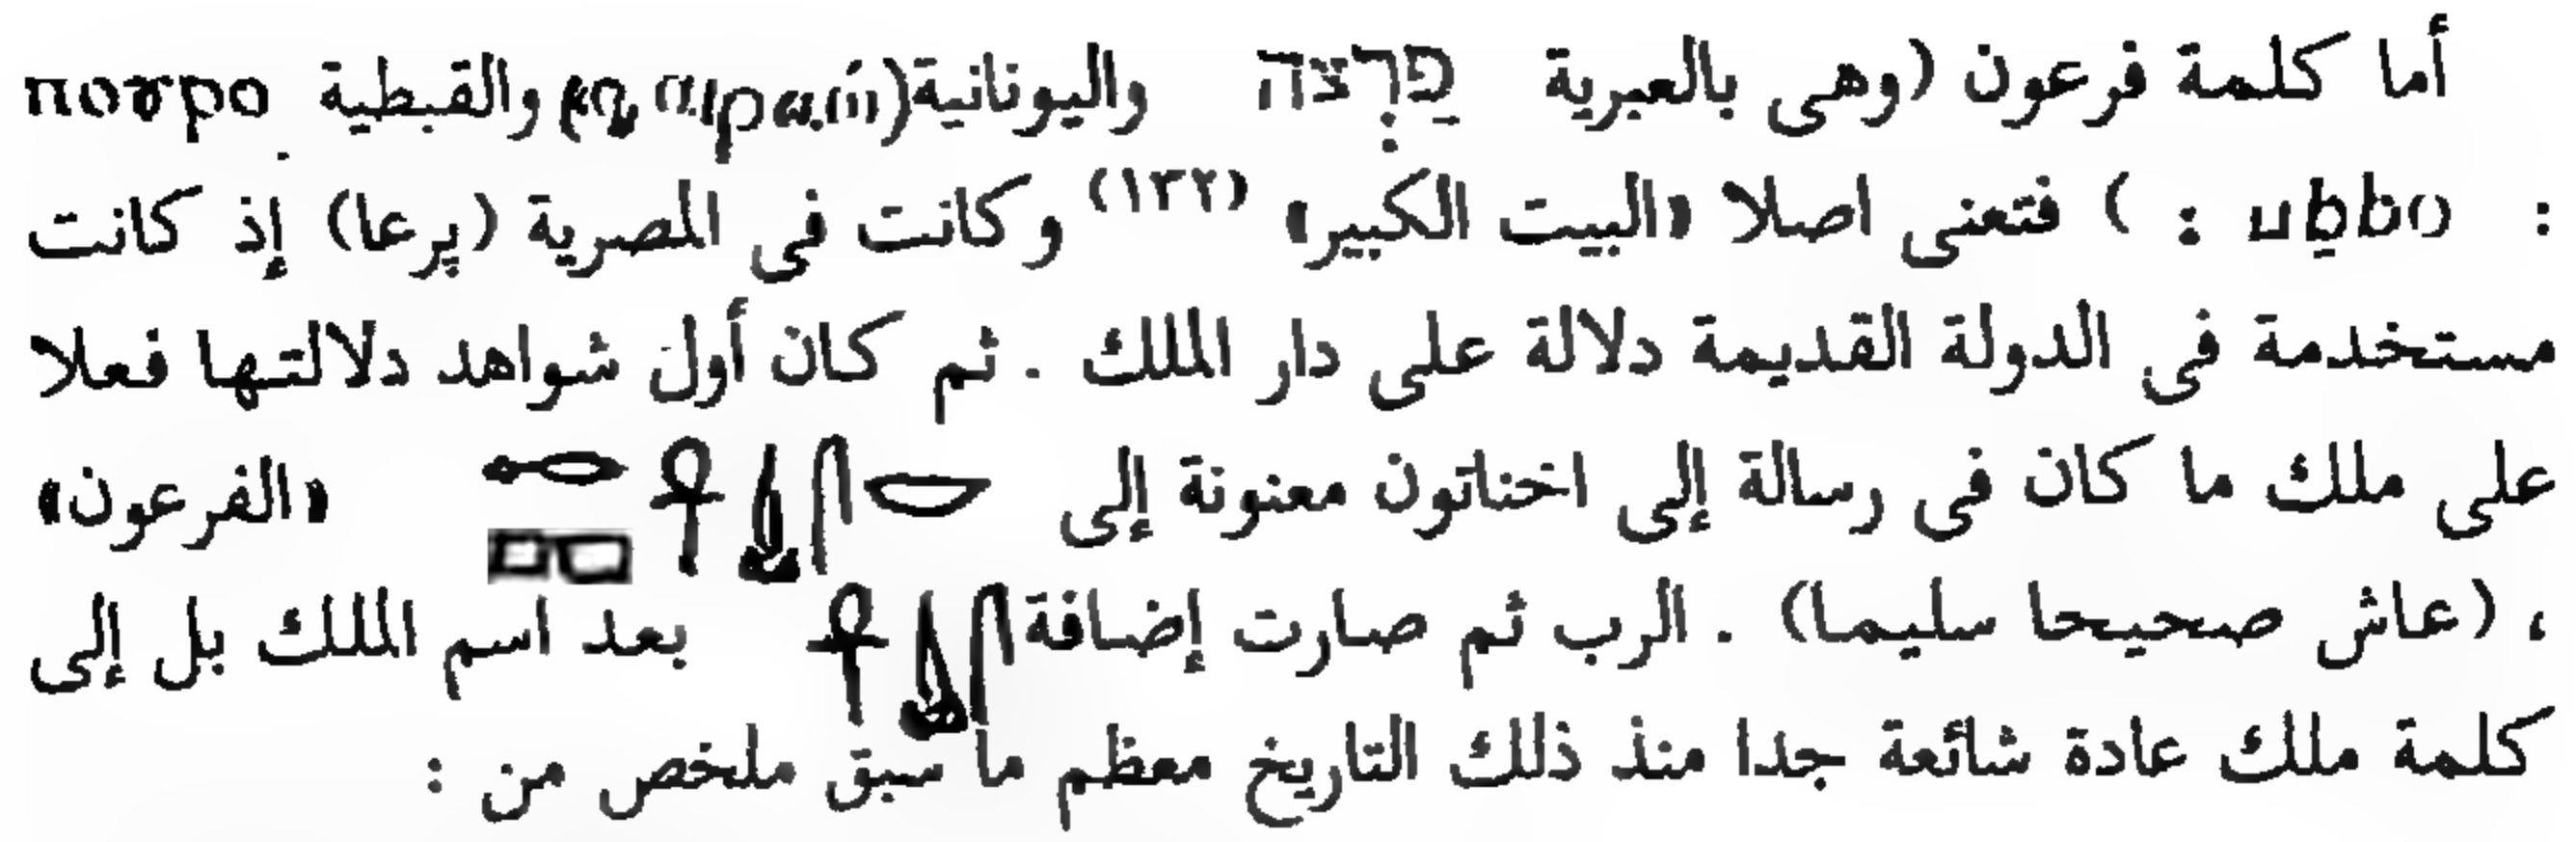 أما كلمة فرعون (وهى بالعبرية פרצה واليونانية( والقبطية ποσρο
: ) فتعنى اصلا «البيت الكبير» (١٣٢) وكانت فى المصرية (پرعا) إذ كانت
مستخدمة فى الدولة القديمة دلالة على دار الملك . ثم كان أول شواهد دلالتها فعلا
على ملك ما كان فى رسالة إلى اخناتون معنونة إلى «الفرعون»
، (عاش صحيحا سليما) . الرب ثم صارت إضافة بعد اسم الملك بل إلى
كلمة ملك عادة شائعة جدا منذ ذلك التاريخ معظم ما سبق ملخص من :